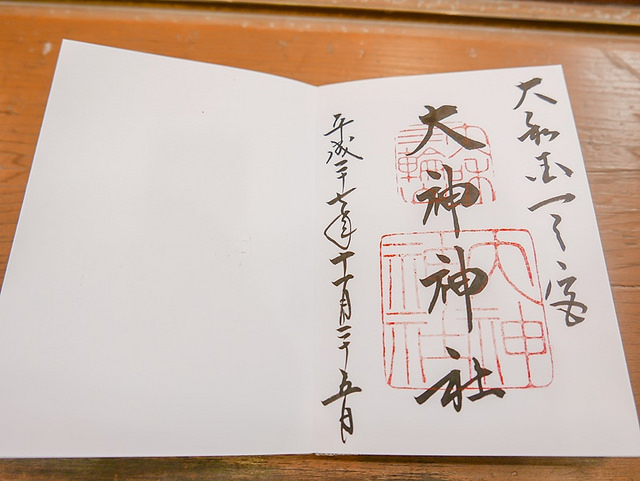 大和国一之宮
大神神社
大神神社
平成二十七年十一月二十五日